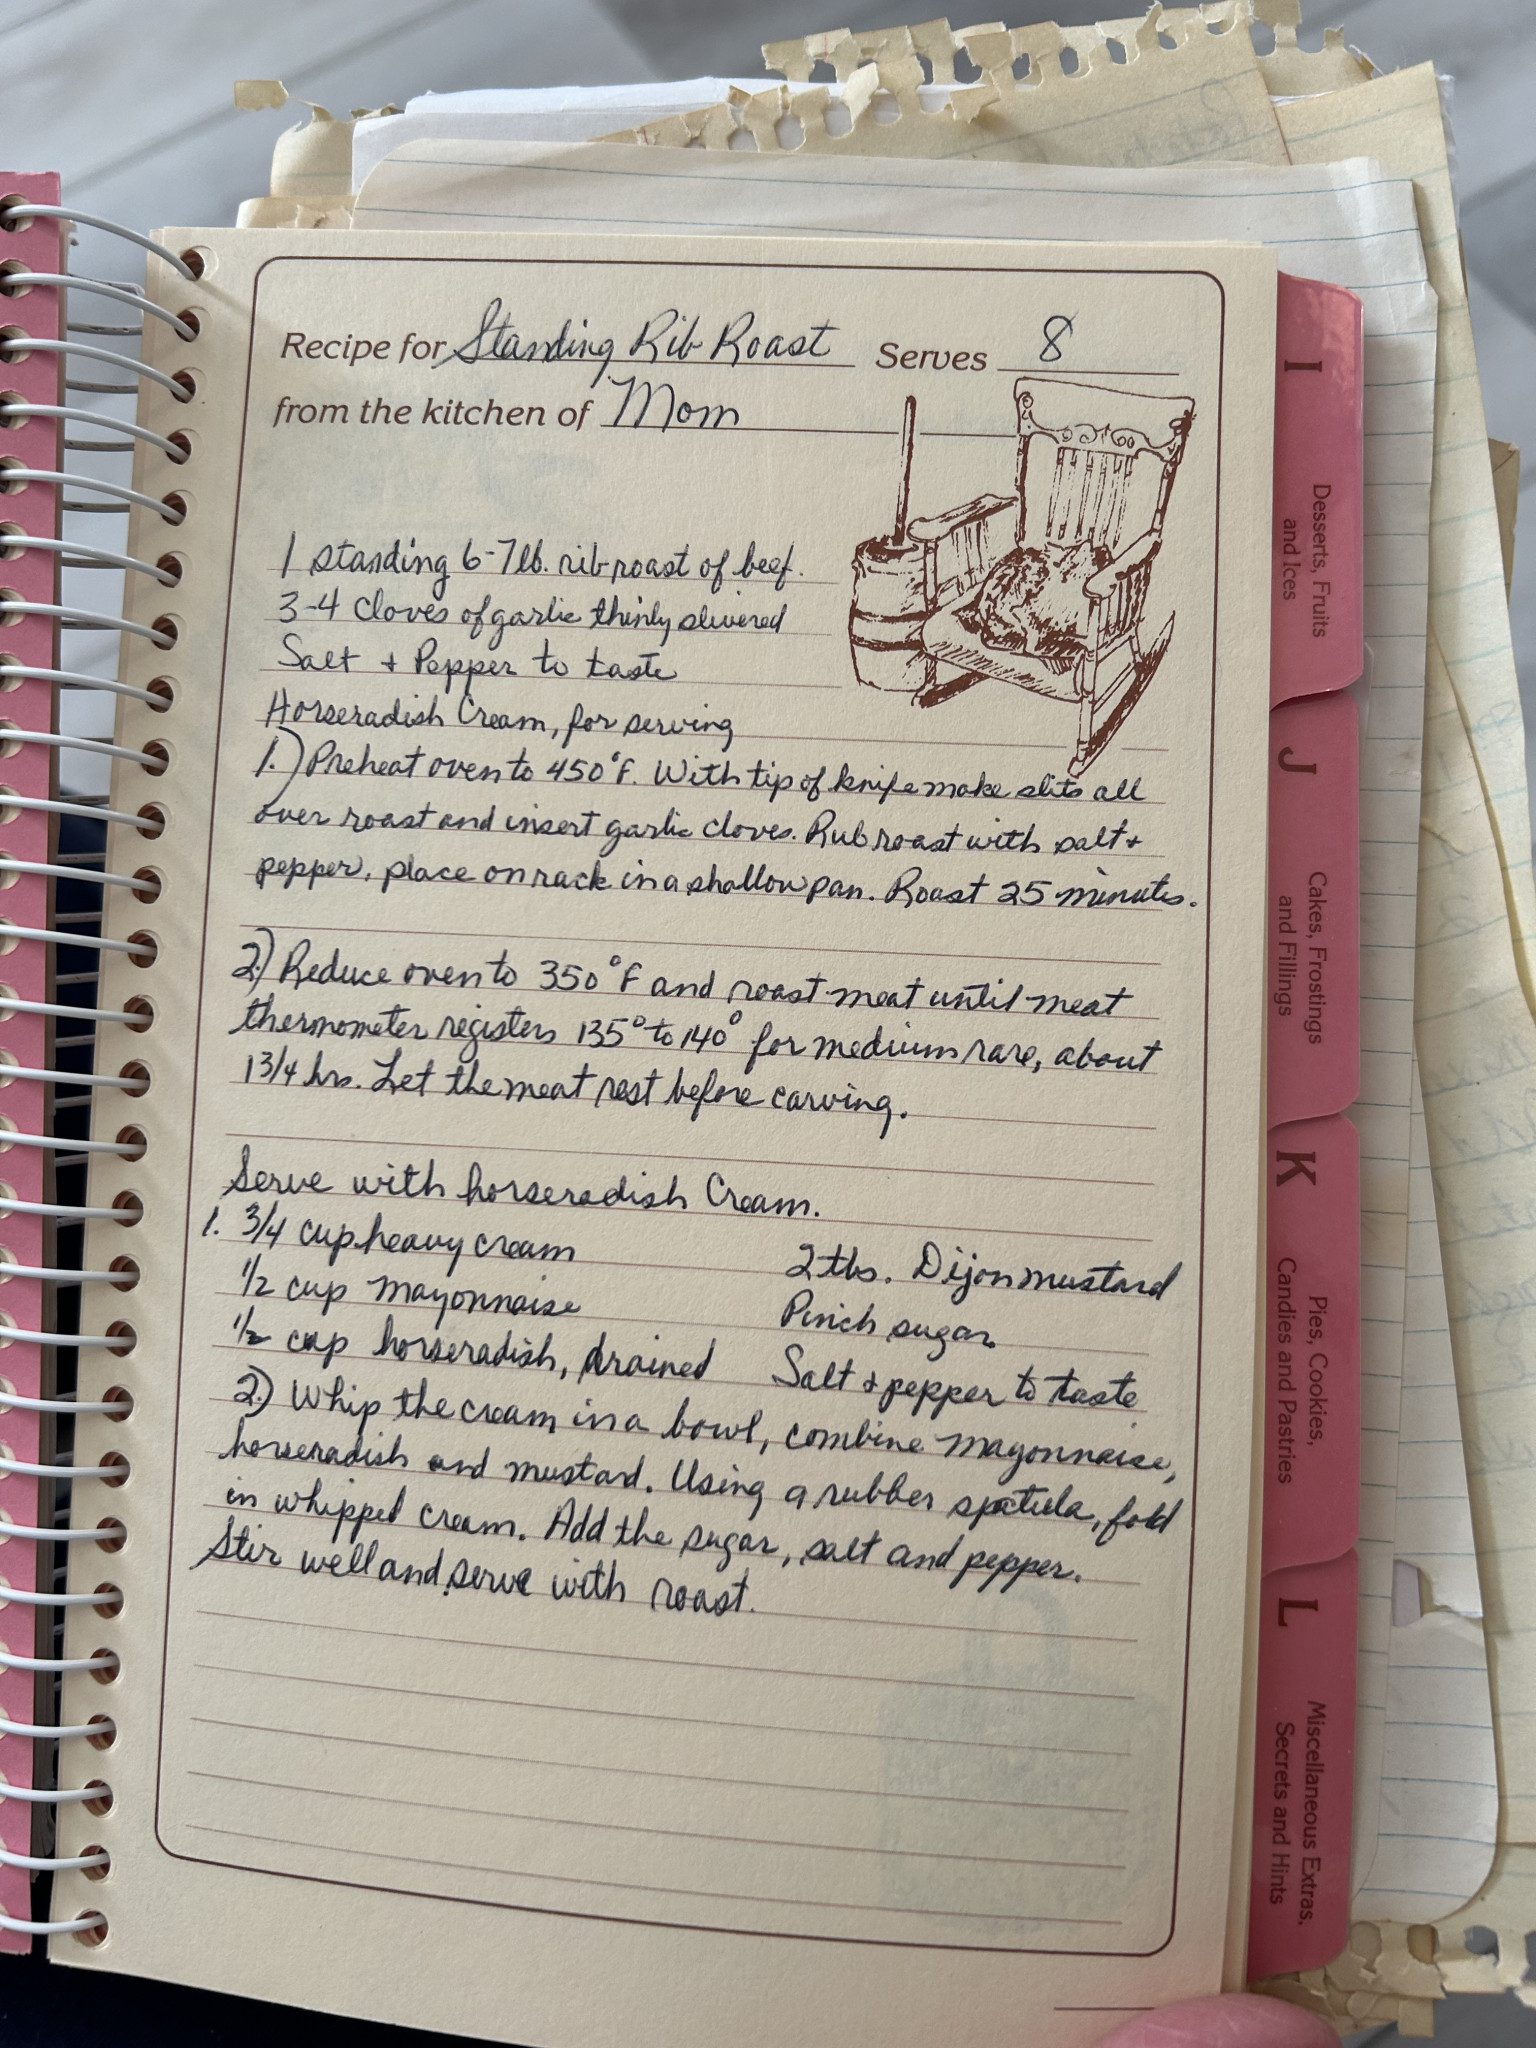 Recipe for Standing Rib Roast Serves 8
from the kitchen of Mom
1 standing 6-7 lb. rib roast of beef.
3-4 cloves of garlic thinly slivered
Salt + Pepper to taste
Horseradish Cream, for serving
1.) Preheat oven to 450°F. With tip of knife make slits all
over roast and insert garlic cloves. Rub roast with salt +
pepper, place on rack in a shallow pan. Roast 25 minutes.
2.) Reduce oven to 350°F and roast meat until meat
thermometer registers 135° to 140° for medium rare, about
1 3/4 hrs. Let the meat rest before carving.
Serve with horseradish Cream.
1. 3/4 cup heavy cream 2 tbs. Dijon mustard
1/2 cup mayonnaise Pinch sugar
1/2 cup horseradish, drained Salt + pepper to taste
2.) Whip the cream in a bowl, combine mayonnaise,
horseradish and mustard. Using a rubber spatula, fold
in whipped cream. Add the sugar, salt and pepper.
Stir well and serve with roast.
I
Desserts, Fruits
and Ices
J
Cakes, Frostings
and Fillings
K
Pies, Cookies,
Candies and Pastries
L
Miscellaneous Extras.
Secrets and Hints